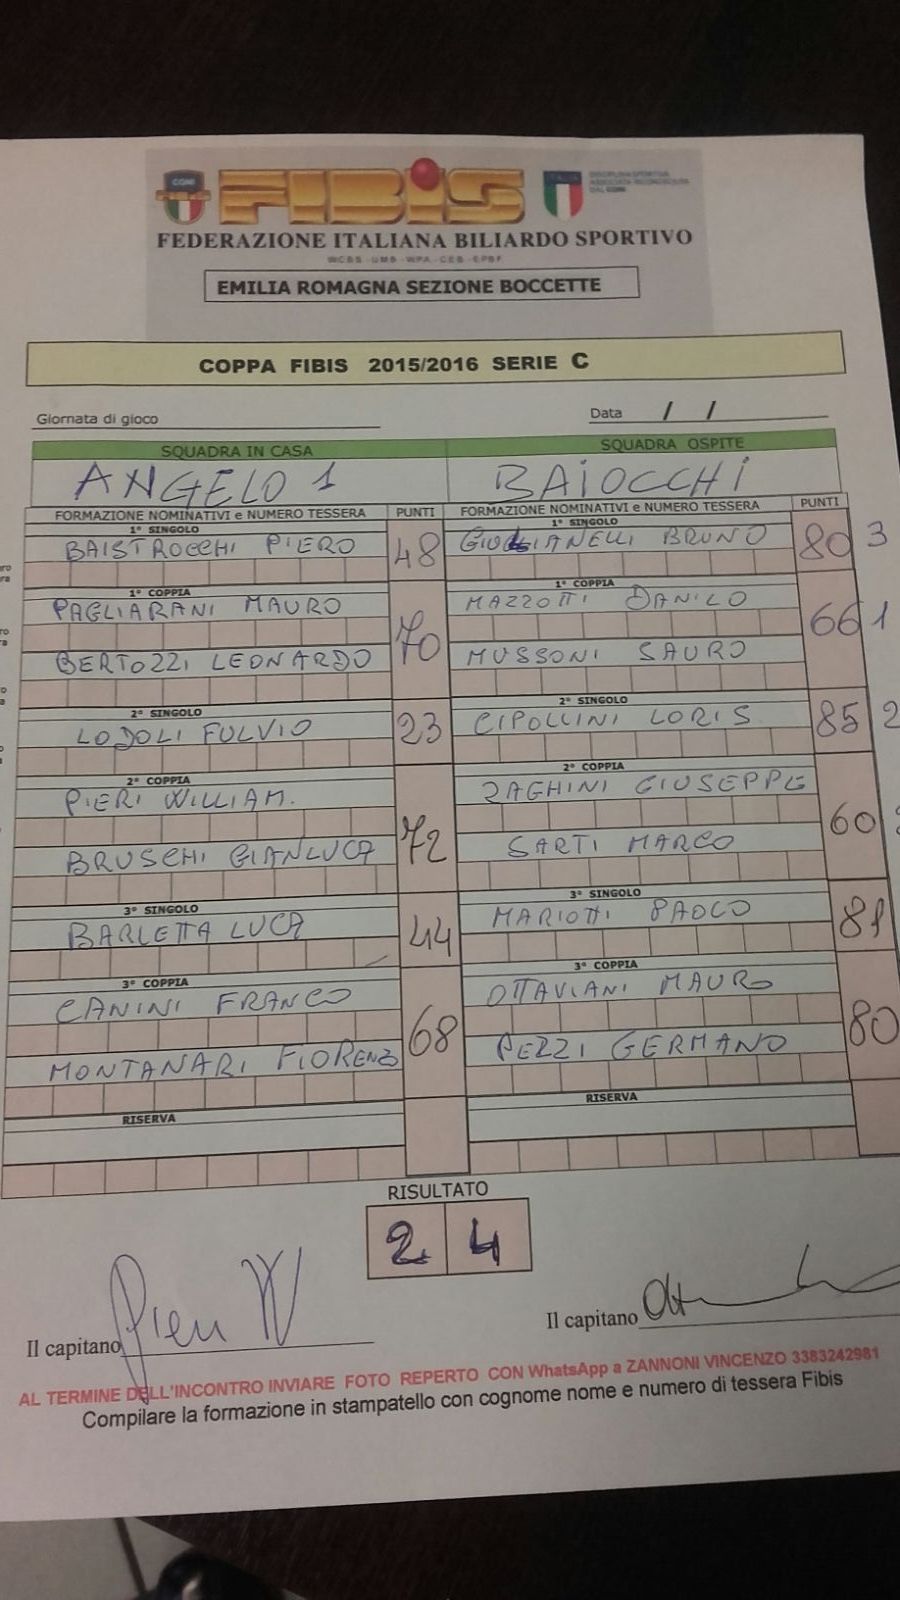 CONI
FIBiS
ITALIA
FEDERAZIONE ITALIANA BILIARDO SPORTIVO
WCBS - UMB - WPA - CEB - EPBF
EMILIA ROMAGNA SEZIONE BOCCETTE
COPPA FIBIS 2015/2016 SERIE C
Giornata di gioco
Data / /
SQUADRA IN CASA SQUADRA OSPITE
ANGELO 1 BAIOCCHI
FORMAZIONE NOMINATIVI e NUMERO TESSERA PUNTI FORMAZIONE NOMINATIVI e NUMERO TESSERA PUNTI
1° SINGOLO 1° SINGOLO
BAISTROCCHI PIERO 48 GIUGLIANELLI BRUNO 80 3
1° COPPIA 1° COPPIA
PAGLIARANI MAURO MAZZOTTI DANILO
70 66 1
BERTOZZI LEONARDO MUSSONI SAURO
2° SINGOLO 2° SINGOLO
LODOLI FULVIO 23 CIPOLLINI LORIS 85 2
2° COPPIA 2° COPPIA
PIERI WILLIAM. ZAGHINI GIUSEPPE
72 60
BRUSCHI GIANLUCA SARTI MARCO
3° SINGOLO 3° SINGOLO
BARLETTA LUCA 44 MARIOTTI PAOLO 81
3° COPPIA 3° COPPIA
CANINI FRANCO OTTAVIANI MAURO
68 80
MONTANARI FIORENZO PEZZI GERMANO
RISERVA RISERVA
RISULTATO
2 4
Il capitano Pieri W Il capitano
AL TERMINE DELL'INCONTRO INVIARE FOTO REPERTO CON WhatsApp a ZANNONI VINCENZO 3383242981
Compilare la formazione in stampatello con cognome nome e numero di tessera Fibis